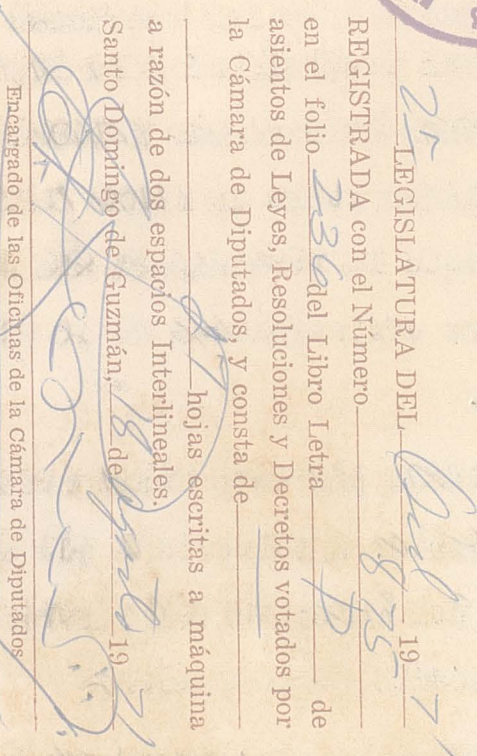 2ª LEGISLATURA DEL Ord 19 71
REGISTRADA con el Número 875
en el folio 236 del Libro Letra D de
asientos de Leyes, Resoluciones y Decretos votados por
la Cámara de Diputados, y consta de
hojas escritas a máquina
a razón de dos espacios Interlineales.
Santo Domingo de Guzmán, 18 de Agosto 19 71
Encargado de las Oficinas de la Cámara de Diputados